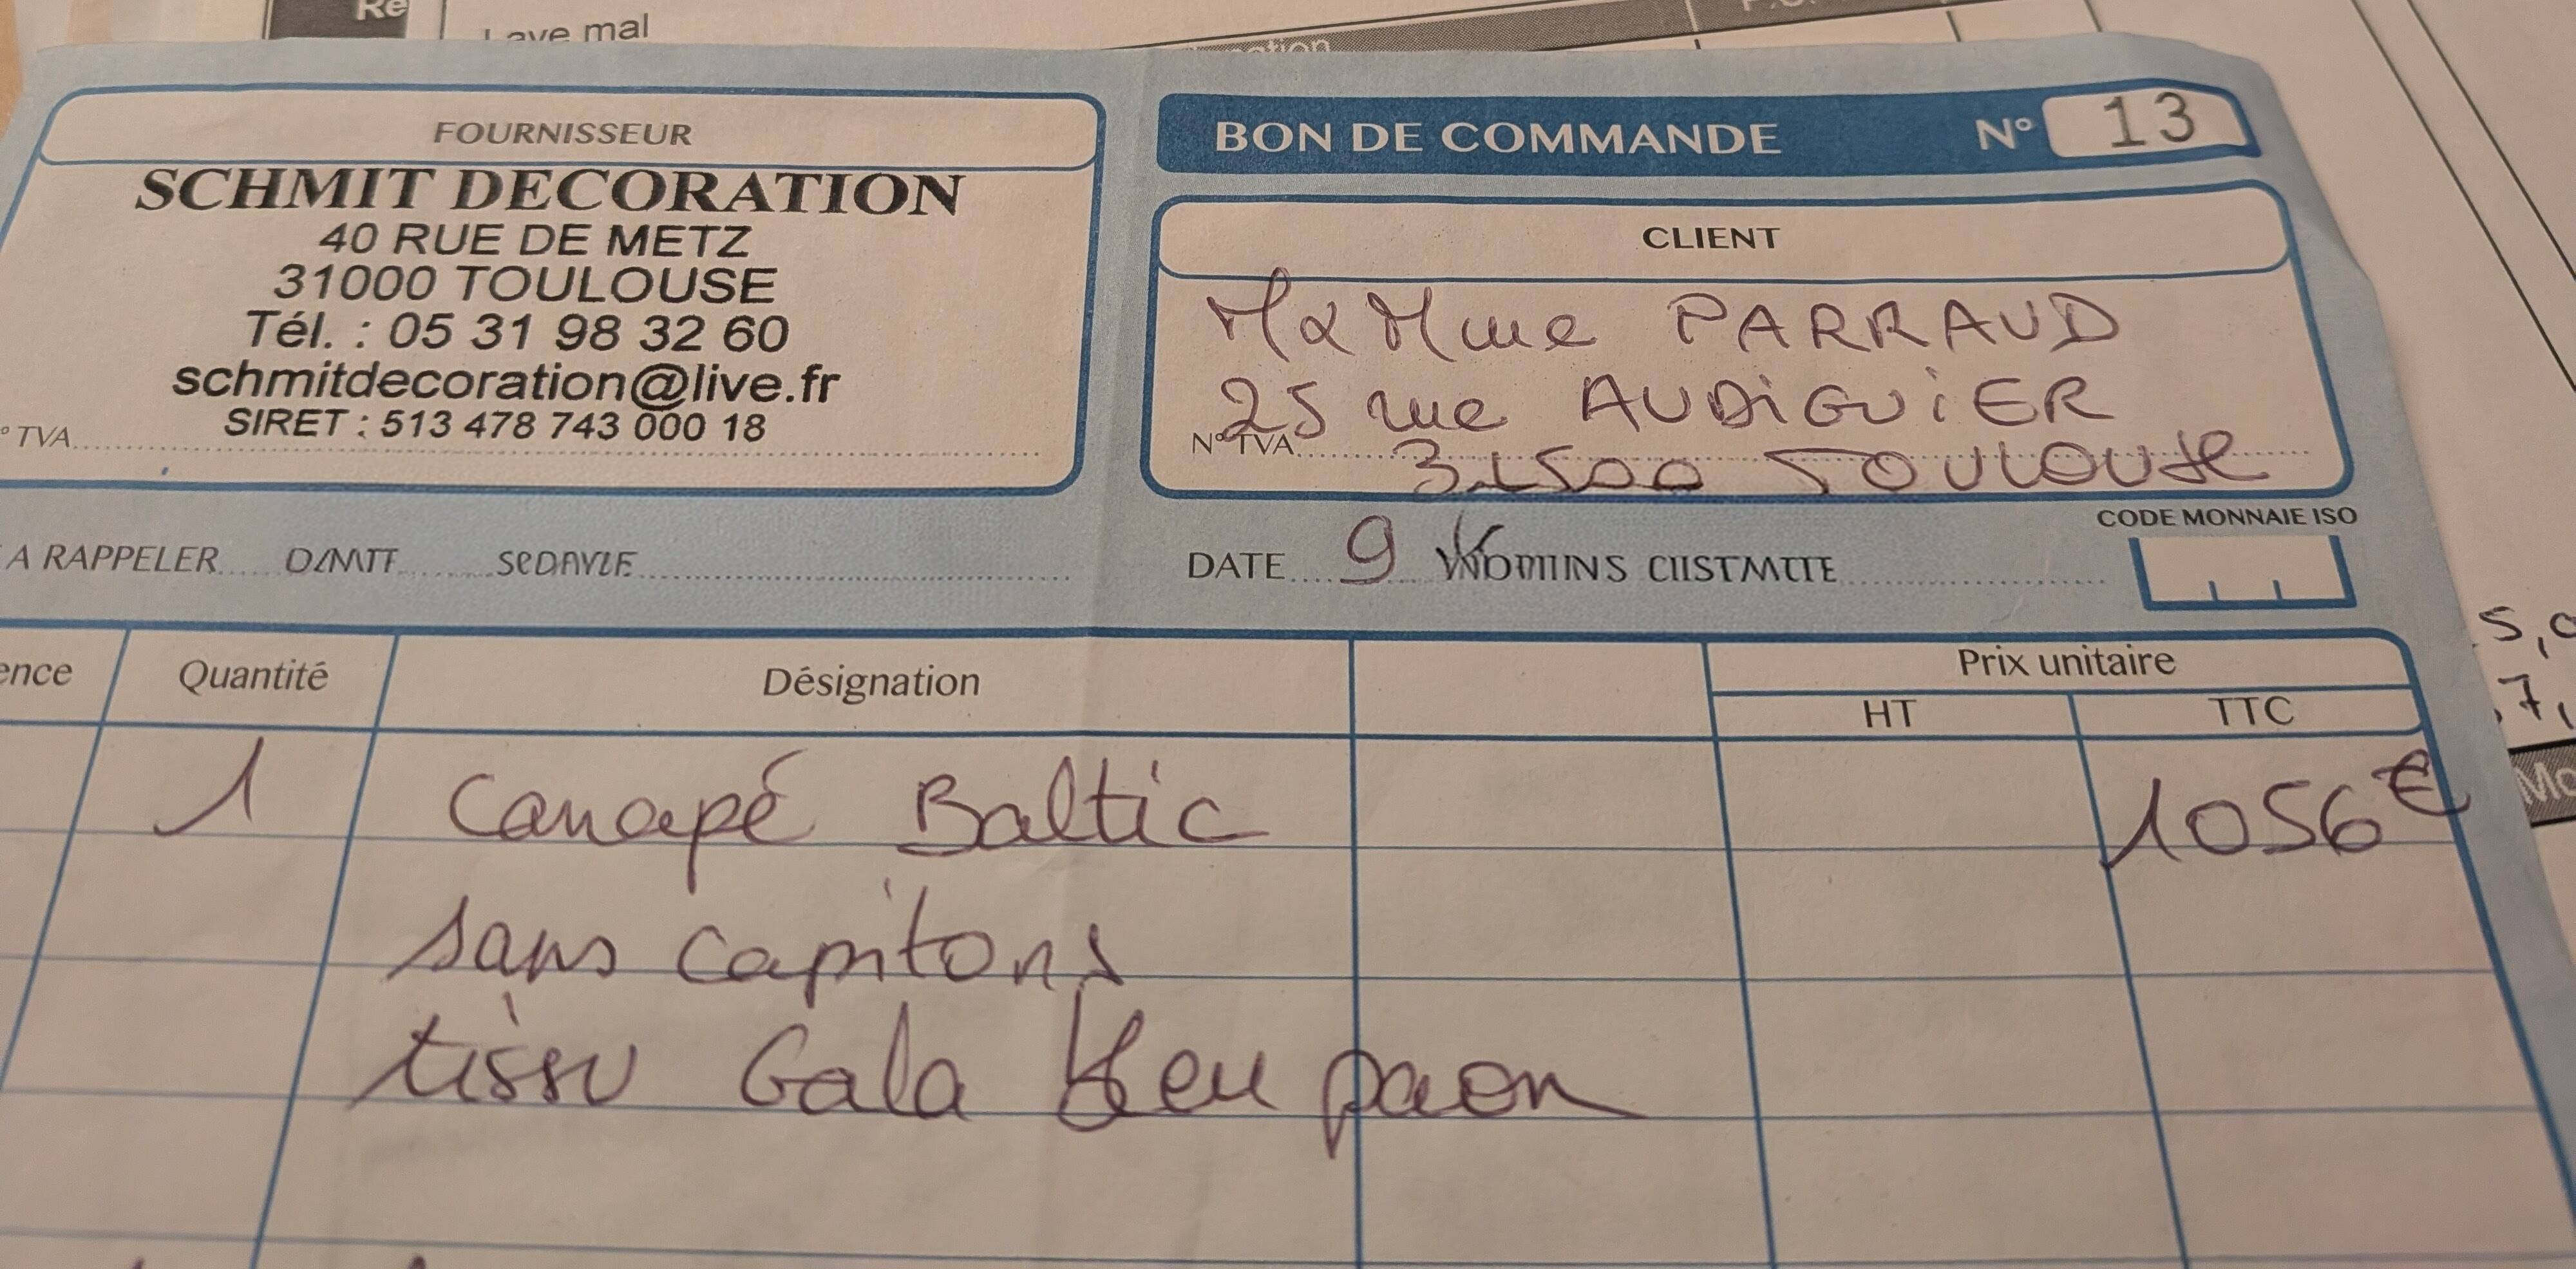 Re
Lave mal
FOURNISSEUR
SCHMIT DECORATION
40 RUE DE METZ
31000 TOULOUSE
Tél. : 05 31 98 32 60
schmitdecoration@live.fr
SIRET : 513 478 743 000 18
° TVA
BON DE COMMANDE N° 13
CLIENT
M & Mme PARRAUD
25 rue AUDIGUIER
N° TVA
31500 TOULOUSE
A RAPPELER
DATE 9
CODE MONNAIE ISO
ence Quantité Désignation Prix unitaire
HT TTC
1 Canapé Baltic 1056€
sans capitons
tissu Gala bleu paon
5,0
7,
Mo